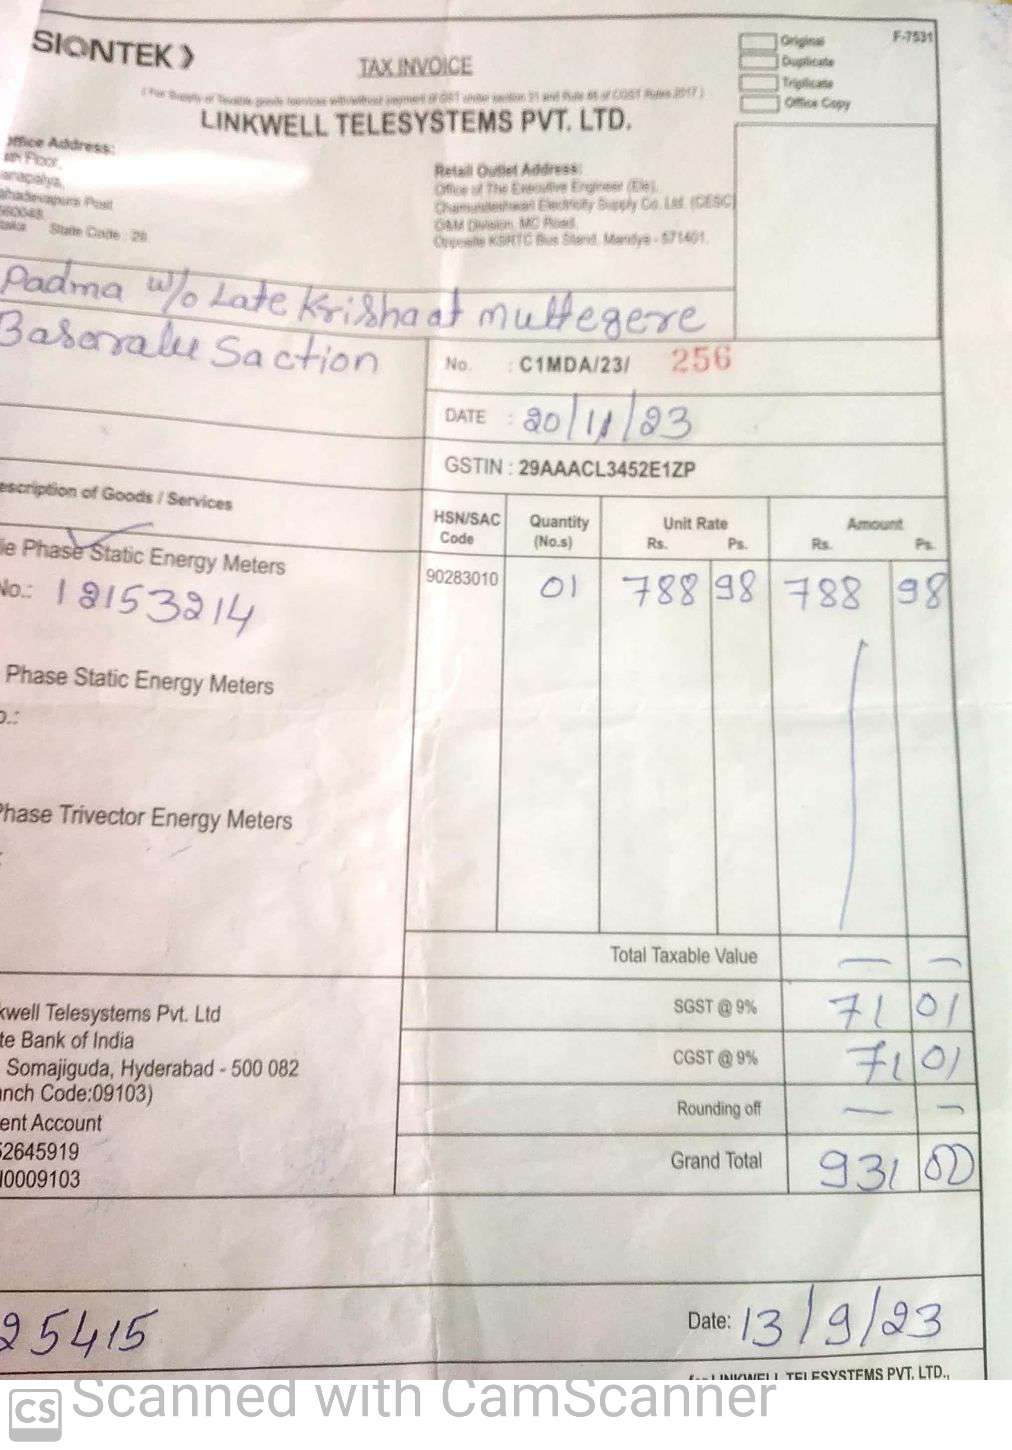 SIONTEK
TAX INVOICE
Original
Duplicate
Triplicate
Office Copy
F-7531
( For Supply of Taxable goods /services with/without payment of GST under section 31 and Rule 46 of CGST Rules 2017 )
LINKWELL TELESYSTEMS PVT. LTD.
ffice Address:
Floor,
anapalya,
ahadevapura Post
560048
State Code : 29
Retail Outlet Address:
Office of The Executive Engineer (Ele),
Chamundeshwari Electricity Supply Co. Ltd. (CESC)
O&M Division, MC Road,
Opposite KSRTC Bus Stand, Mandya - 571401.
Padma w/o Late Krishna at muttegere
Basaralu Saction
No. : C1MDA/23/ 256
DATE : 20/11/23
GSTIN : 29AAACL3452E1ZP
escription of Goods / Services
HSN/SAC Code
Quantity (No.s)
Unit Rate Rs. Ps.
Amount Rs. Ps.
le Phase Static Energy Meters
No.: 12153214
90283010 01 788 98 788 98
Phase Static Energy Meters
o.:
Phase Trivector Energy Meters
Total Taxable Value — –
SGST @ 9% 71 01
CGST @ 9% 71 01
Rounding off — –
Grand Total 931 00
kwell Telesystems Pvt. Ltd
te Bank of India
Somajiguda, Hyderabad - 500 082
anch Code:09103)
ent Account
52645919
10009103
25415
Date: 13/9/23
for LINKWELL TELESYSTEMS PVT. LTD.,
CS Scanned with CamScanner